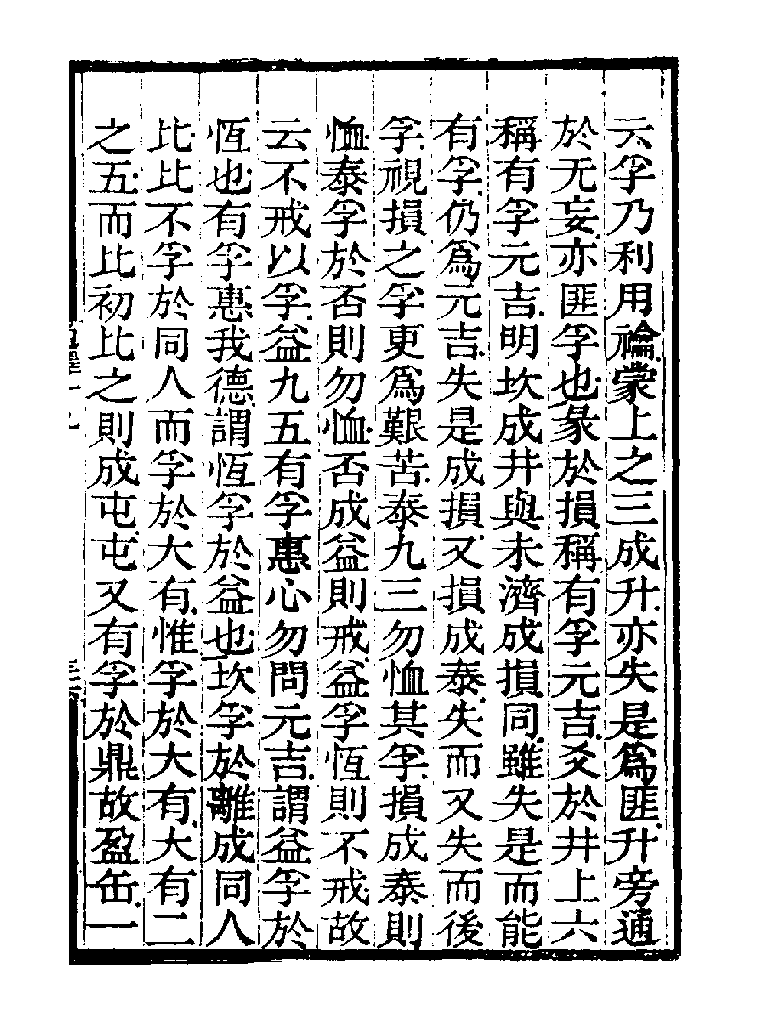 云孚乃利用禴蒙上之三成升亦失是爲匪升旁通
於无妄亦匪孚也彖於損稱有孚元吉爻於井上六
稱有孚元吉明坎成井與未濟成損同雖失是而能
有孚仍爲元吉失是成損又損成泰失而又失而後
孚視損之孚更爲艱苦泰九三勿恤其孚損成泰則
恤泰孚於否則勿恤否成益則戒益孚恆則不戒故
云不戒以孚益九五有孚惠心勿問元吉謂益孚於
恆也有孚惠我德謂恆孚於益也坎孚於離成同人
比比不孚於同人而孚於大有惟孚於大有大有二
之五而比初比之則成屯屯又有孚於鼎故盈缶一